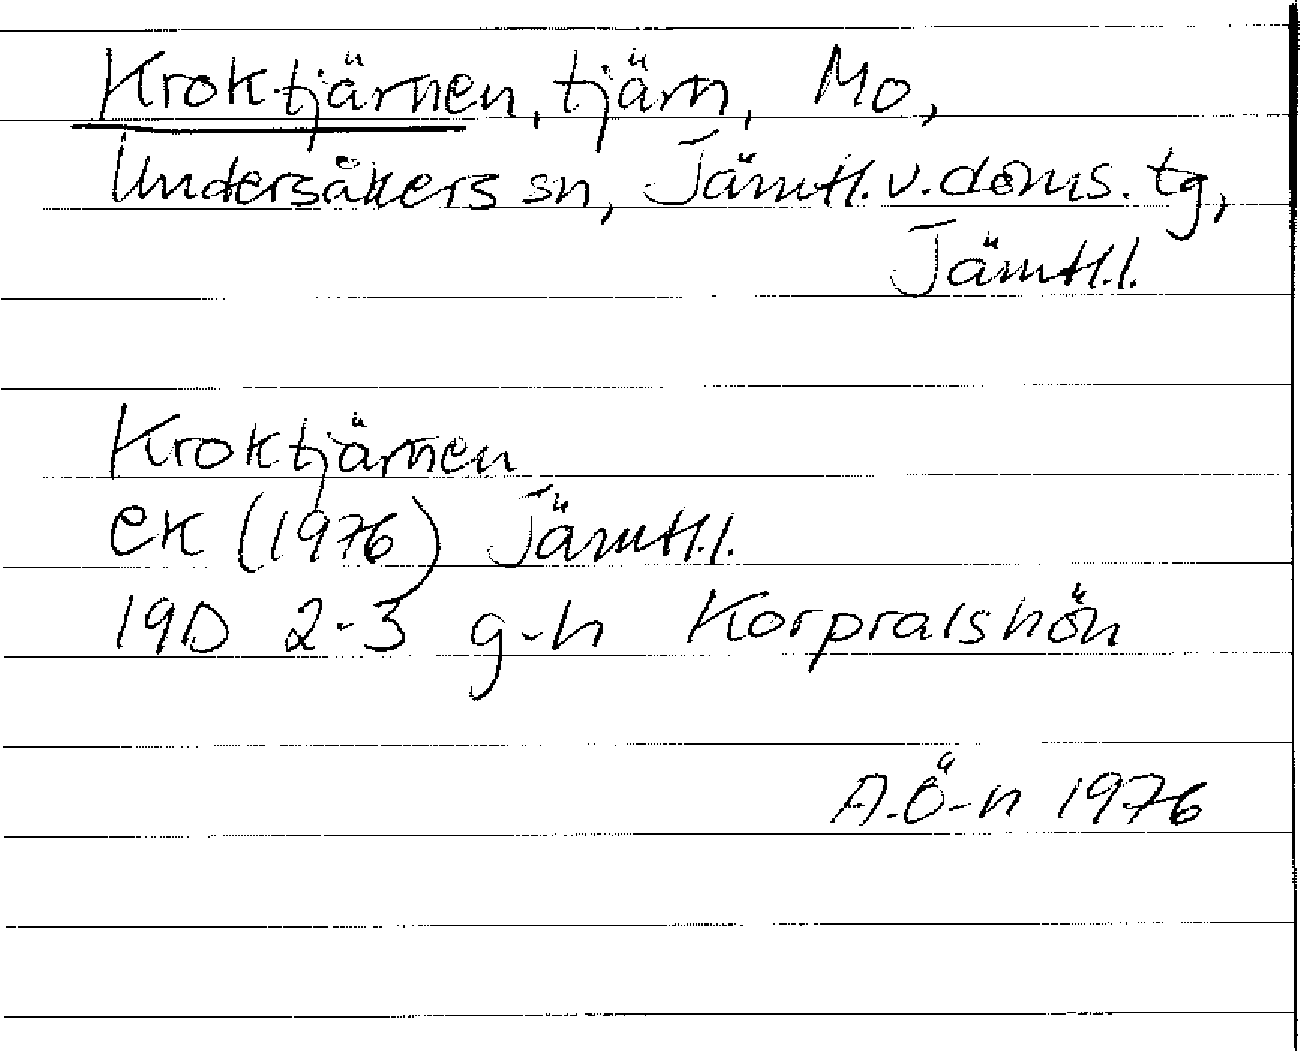 Kroktjärnen, tjärn, Mo,
Undersåkers sn, Jämtl. v. doms. tg,
Jämtl.l.
Kroktjärnen
ek (1976) Jämtl.l.
19D 2-3 g-h Korpralshön
A.Ö-n 1976